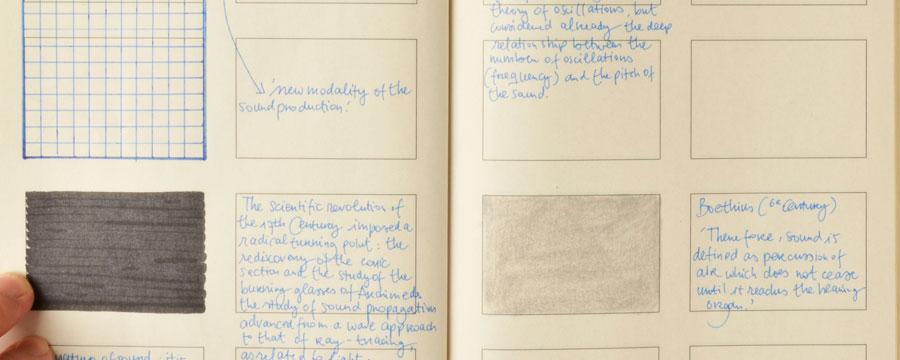 'new modality of the
sound production.'
The scientific revolution of
the 17th Century imposed a
radical turning point: the
rediscovery of the conic
section and the study of the
burning glasses of Archimede,
the study of sound propagation
advanced from a wave approach
to that of ray-tracing,
as related to light.
nature of sound: it is
theory of oscillations, but
considered already the deep
relationship between the
number of oscillations
(frequency) and the pitch of
the sound.
Boethius (6th Century)
'Therefore, sound is
defined as percussion of
air which does not cease
until it reaches the hearing
organ.'